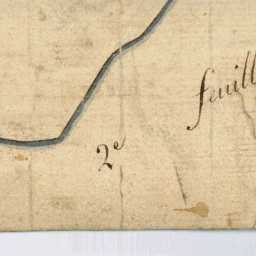 2e feuill